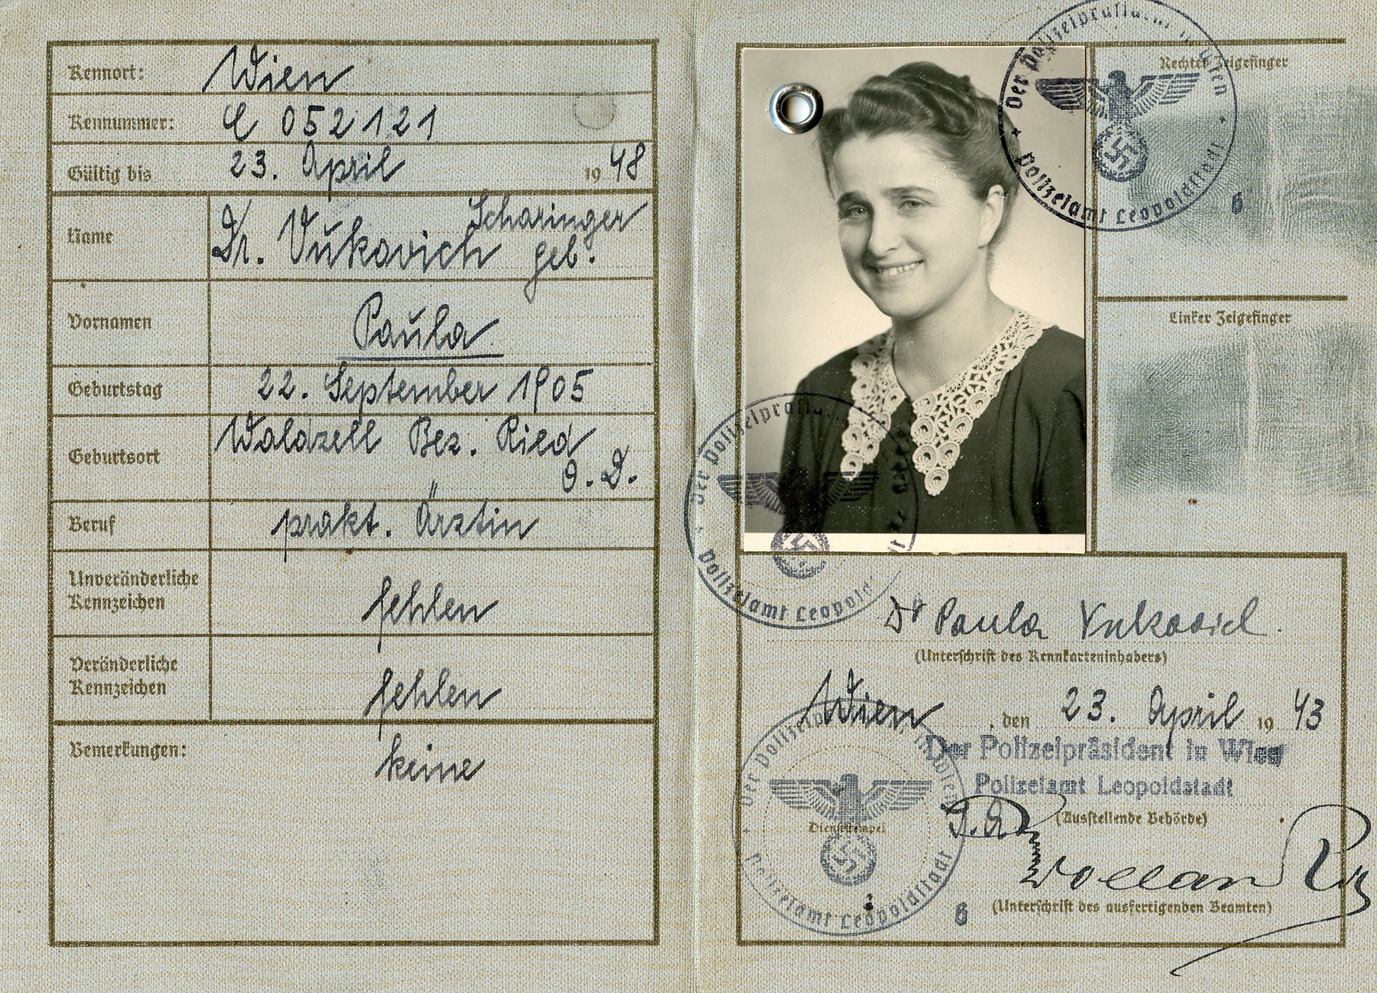 Kennort: Wien
Kennummer: C 052121
Gültig bis 23. April 1948
Name Dr. Vukovich geb.
Scharinger
Vornamen Paula
Geburtstag 22. September 1905
Geburtsort Waldzell Bez. Ried
O. D.
Beruf prakt. Ärztin
Unveränderliche
Kennzeichen fehlen
Veränderliche
Kennzeichen fehlen
Bemerkungen: keine
Rechter Zeigefinger
Der Polizeipräsident in Wien
Polizeiamt Leopoldstadt
6
Linker Zeigefinger
Der
Polizeiamt Leopold
Dr Paula Vukovich.
(Unterschrift des Kennkarteninhabers)
Wien, den 23. April 1943
Der Polizeipräsident in Wien
Polizeiamt Leopoldstadt
(Ausstellende Behörde)
Der in Wien
Dienststempel
Polizeiamt Leopoldstadt
6
(Unterschrift des ausfertigenden Beamten)